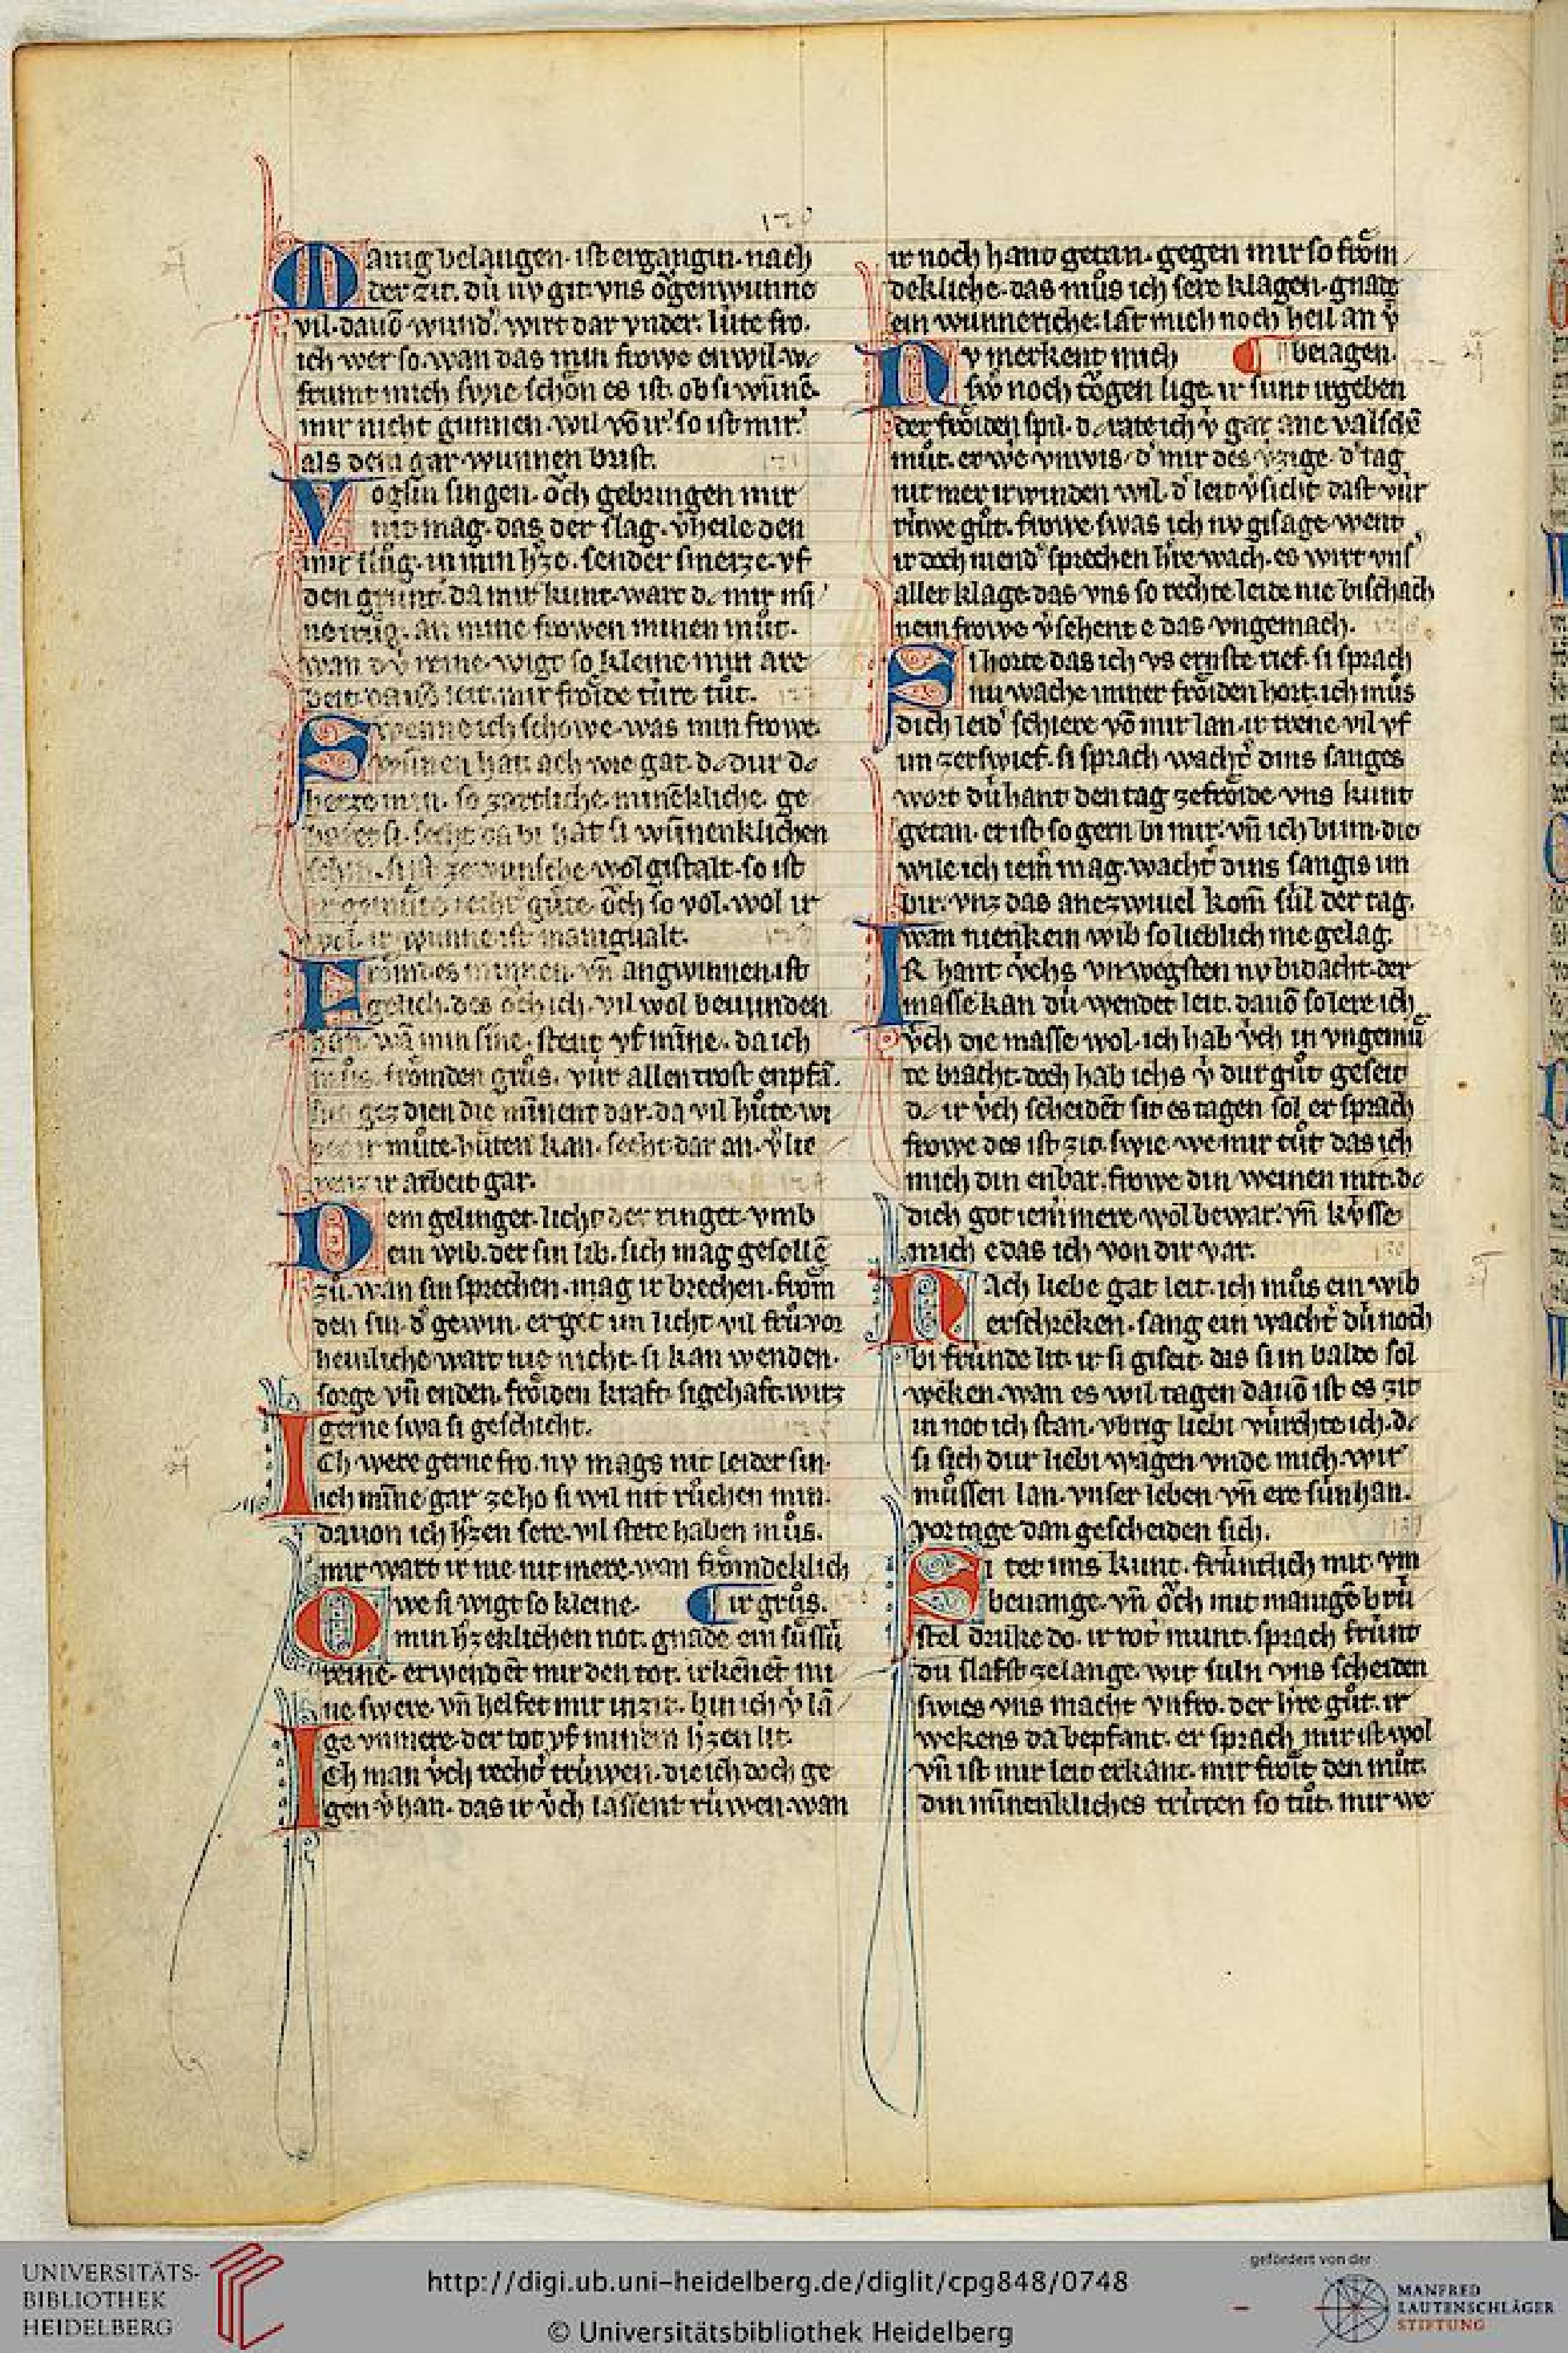 Manig belangen. ist ergangin. nach
der zit. dú nv git. vns ögen wunne
vil. dauō wund'. wirt dar vnder. lúte fro.
ich wer so. wan das min frowe enwil. we
frúmt mich swie schön es ist. ob si wūnē.
mir nicht gunnen. wil vō ir' so ist mir'
als dem gar wunnen brist.
Voglin singen. öch gebringen mir
nit mag. das der slag. v̓heile den
mir slůg. in min h̓ze. sender smerze. vf
den grunt. da mit kunt. wart dc mir nā
an mine frowen minen můt.
wan dv̓ reine. wigt so kleine min are
beit dauō leit. mir froͤide túre tůt.
Swenne ich schowe. was min frowe
wūnen hat ach wie gar. dc dur dc
herze min. so zartliche. minēkliche. ge
baret si. secht da bi hat si wūnenklichen
schin. si ist ze wunsche wol gistalt. so ist
ir gemůte recht gůte. öch so vol. wol ir
wol. ir wunne ist manigualt.
Froͤmdes minnen. vn̄ angwinnen. ist
gelich. des öch ich. vil wol beuunden
han. wā min sine. stent vf mīne. da ich
můs. froͤmden grůs. vúr allen trost enpfā.
dien die mīnent dar. da vil hůte. wi
der ir můte. hůten kan. secht dar an. v̓lie
renz ir arbeit gar.
Dem gelinget. licht der ringet. vmb
ein wib. der sin lib. sich mag gesellē
zů. wan sin sprechen. mag ir brechen. froͤm
den sin. d' gewin. erget im licht vil frů. vor
heinliche wart nie nicht. si kan wenden.
sorge vn̄ enden. froͤiden kraft sigehaft. wirt
gerne swa si geschicht.
ICh were gerne fro. nv mags nit leider sin.
ich mīne gar ze ho si wil nit růchen min.
dauon ich h̓zen sere. vil stete haben můs.
mir wart ir nie nit mere. wan froͤmdeklich
Owe si wigt so kleine. ¶ ir grůs.
min h̓zeklichen not. gnade ein sůssú
reine. erwendēt mir den tot. irkēnēt mi
ne swere. vn̄ helfet mir inzit. bin ich v̓ lā
ge vnmere. der tot vf minem h̓zen lit.
ICh man v̓ch recht' trúwen. die ich doch ge
gen v̓ han. das ir v̓ch lassent rúwen. wan
ir noch hant getan. gegen mir so froͤm
dekliche. das můs ich sere klagen. gnade
ein wunneriche. lat mich noch heil an v̓
Nv merkent mich ¶ beiagen.
sw noch toͤgen lige. ir sint irgeben
der froͤiden spil. dc rate ich v̓ gar ane valschē
můt. er we vnwis. d' mir des v̓zige. d' tag
nit mer irwinden wil. d' leit v̓sicht dast vúr
rúwe gůt. frowe swas ich nv gisage went
ir doch niend' sprechen h̓re wach. es wirt vns
aller klage. das vns so rechte leide nie bischach
nein frowe v̓sehent e das vngemach.
Si horte das ich vs ernste rief. si sprach
nu wache imner froͤiden hort. ich můs
dich leid' schiere vō mir lan. ir trene vil vf
im zerswief. si sprach wacht' dins sanges
wort dú hant den tag ze froͤide vns kunt
getan. er ist so gern bi mir. vn̄ ich bi im. die
wile ich iem̄ mag. wacht' dins sangis un
bir. vnz das ane zwiuel kom̄ súl der tag.
wan nienkein wib so lieblich me gelag.
IR hant v̓chs vnwegsten nv bidacht. der
masse kan dú wendet leit. dauō so lere ich
v̓ch die masse wol. ich hab v̓ch in vngemů
te bracht. doch hab ichs v̓ dur gůt geseit
dc ir v̓ch scheidēt sit es tagen sol er sprach
frowe des ist zit. swie we mir tůt das ich
mich din enbar. frowe din weinen mit. dc
dich got iemmere wol bewar. vn̄ kv̓sse
mich e das ich von dir var.
NAch liebe gat leit. ich můs ein wib
erschreken. sang ein wacht' dú noch
bi frúnde lit. ir si giseit. dis sim balde sol
weken. wan es wil tagen dauō ist es zit
in not ich stan. vbrig liebi vúrchte ich. dc
si sich dur liebi wagen vnde mich. wir
můssen lan. vnser leben vn̄ ere sún han.
vor tage dan gescheiden sich.
Si tet ims kunt. frúntlich mit vm
beuange. vn̄ öch mit manigē brú
stel druke do. ir rot' munt. sprach frúnt
du slafst ze lange. wir suln vns scheiden
swies vns macht vnfro. der h̓re gůt. ir
wekens da bepfant. er sprach mir ist wol
vn̄ ist mir leit erkant. mir froͤit den můt.
din mīnenkliches trúten so tůt. mir we
UNIVERSITÄTS-
BIBLIOTHEK
HEIDELBERG
http://digi.ub.uni-heidelberg.de/diglit/cpg848/0748
© Universitätsbibliothek Heidelberg
gefördert von der
MANFRED
LAUTENSCHLÄGER
STIFTUNG